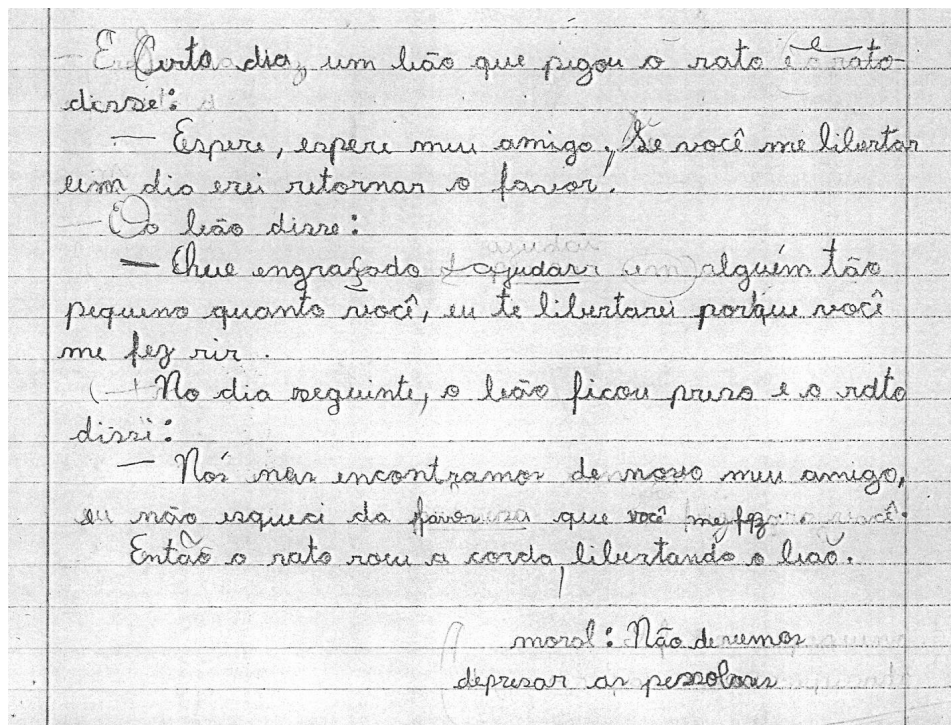 Certo dia, um leão que pegou o rato e o rato
disse:
— Espere, espere meu amigo, Se você me libertar
um dia erei retornar o favor.
— O leão disse:
— Chee engraçado ajudar alguém tão
pequeno quanto você, eu te libertarei porque você
me fez rir.
— No dia seguinte, o leão ficou preso e o rato
dissi:
— Nós nos encontramos de novo meu amigo,
eu não esqueci da que você me fez.
Então o rato roeu a corda, libertando o leão.
moral: Não devemos
depresar as pessoas